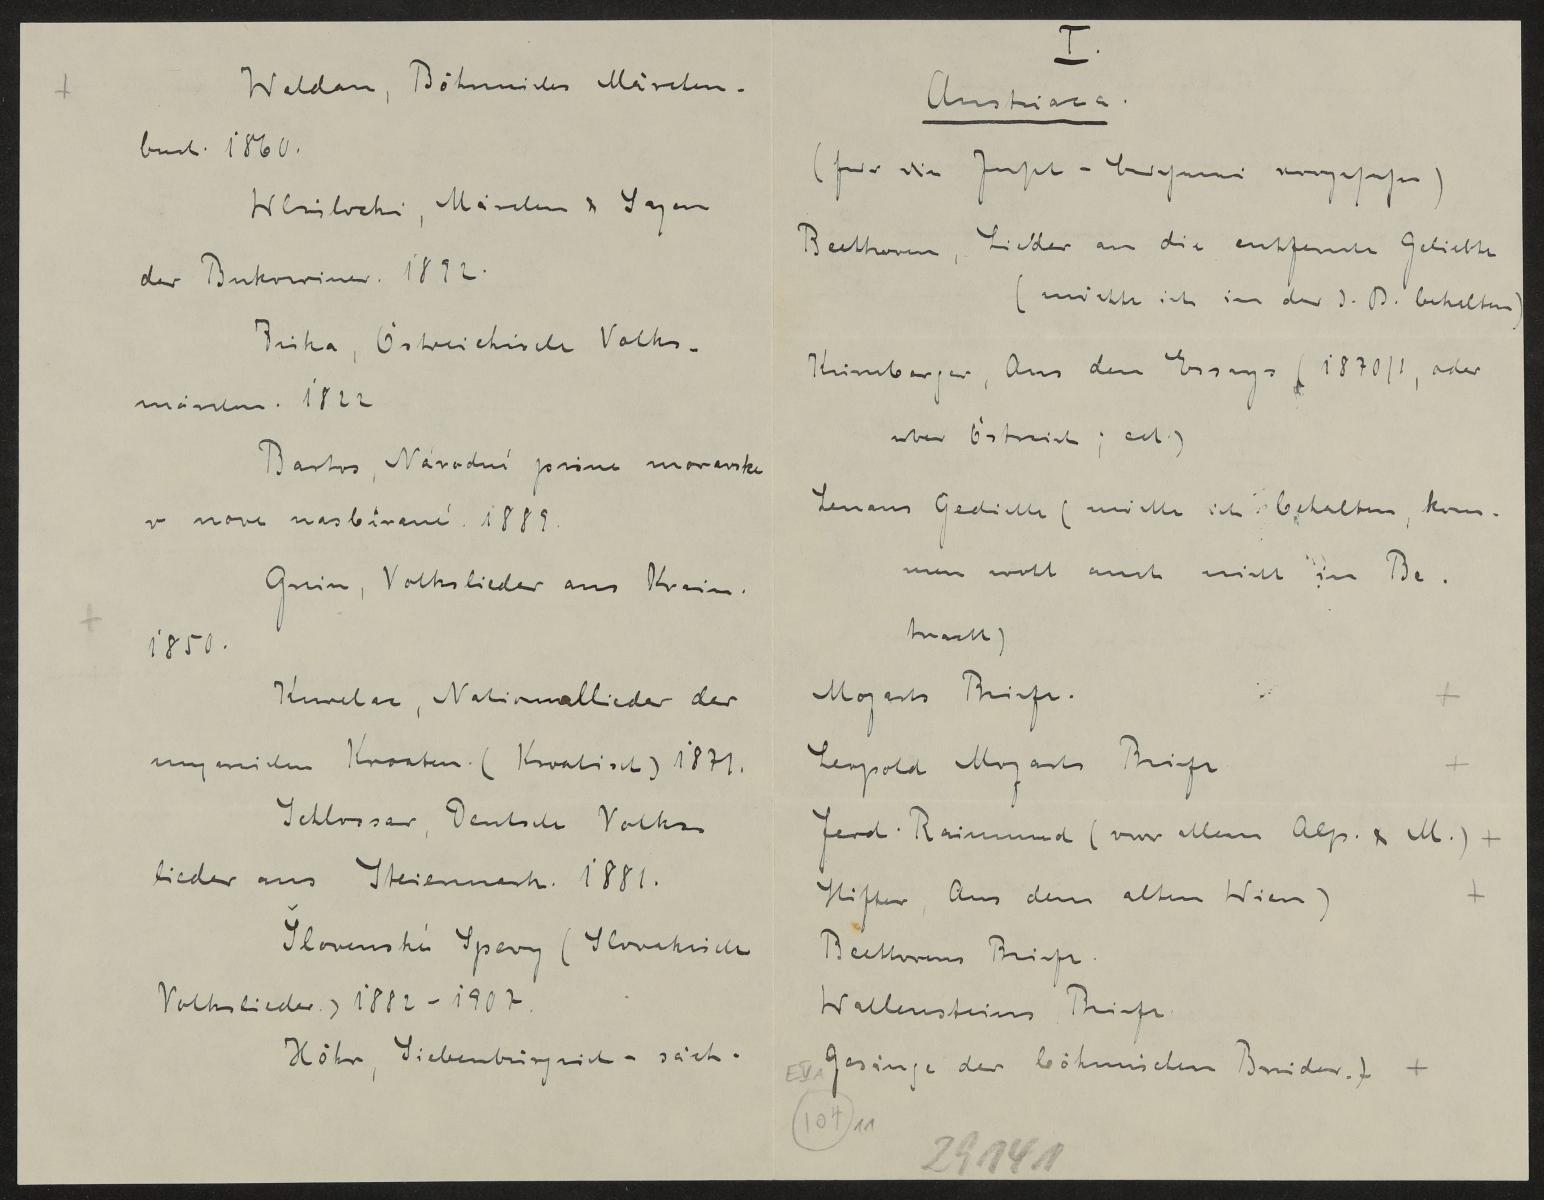 Waldau, Böhmisches Märchen-
buch. 1860.
Wlislocki, Märchen & Sagen
der Bukowiner. 1892.
Ziska, Östreichische Volks-
märchen. 1822
Bartos, Národní písne moravske
v nove nasbírané. 1889.
Grün, Volkslieder aus Krain.
1850.
Kurelac, Nationallieder der
ungarischen Kroaten. (Kroatisch) 1871.
Schlossar, Deutsche Volks
lieder aus Steiermark. 1881.
Slovenské Spevy (Slovakische
Volkslieder.) 1882 - 1907.
Höhr, Siebenbürgisch - säch-
I.
Austriaca.
(für die Insel - )
Beethoven, Lieder an die entfernte Geliebte
(möchte ich in der Ö. B. behalten)
Kürnberger, Aus den Essays (1870/1, oder
über Östreich; ect.)
Lenaus Gedichte (möchte ich behalten, kom-
men wohl auch nicht in Be-
tracht)
Mozarts Briefe. +
Leopold Mozarts Briefe +
Ferd. Raimund (vor allem Alp. & M.) +
Stifter, Aus dem alten Wien) +
Beethovens Briefe.
Wallensteins Briefe
Gesänge der böhmischen Brüder.) +
104 11
29141